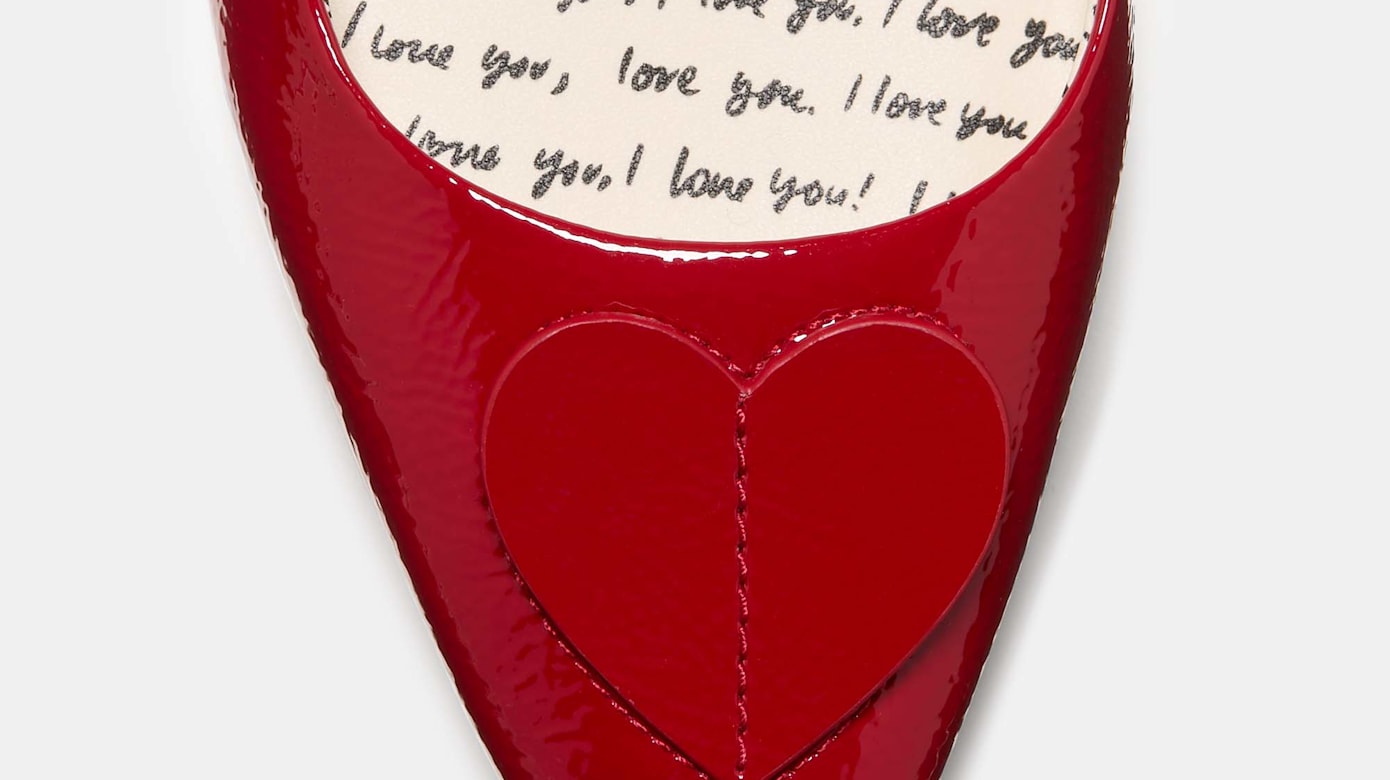 I love you, I love you
I love you, love you. I love you
love you, I love you! I